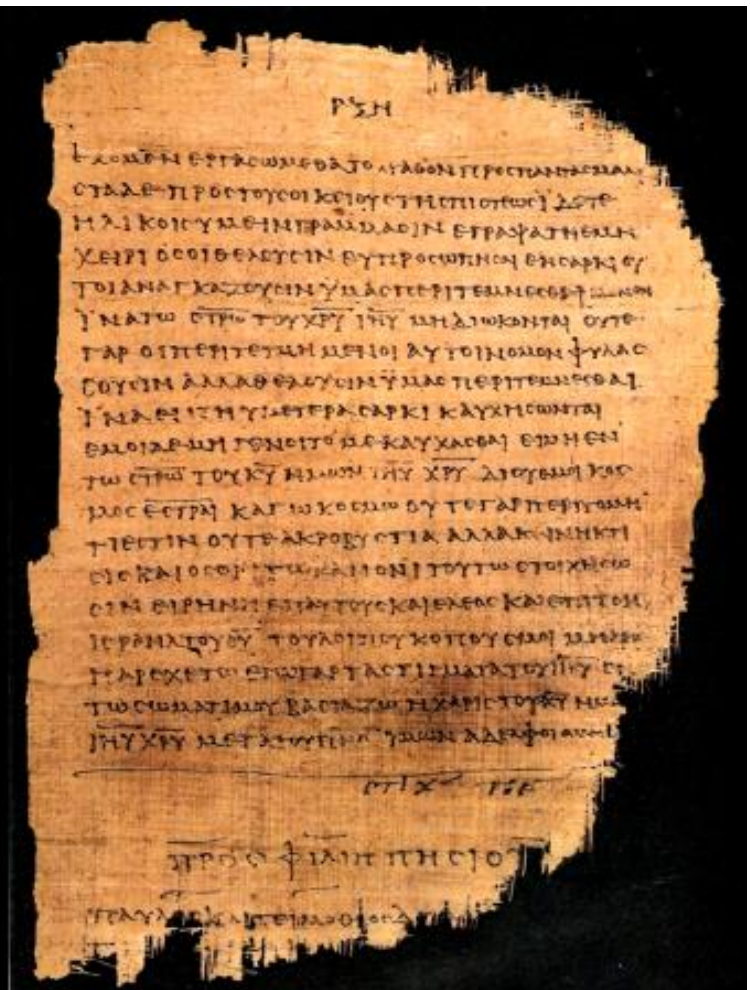 ΡΞΗ
ΕΧΟΜΕΝ ΕΡΓΑϹΩΜΕΘΑ ΤΟ ΑΓΑΘΟΝ ΠΡΟϹ ΠΑΝΤΑϹ ΜΑΛΙ
ϹΤΑ ΔΕ ΠΡΟϹ ΤΟΥϹ ΟΙΚΕΙΟΥϹ ΤΗϹ ΠΙϹΤΕΩϹ ΪΔΕΤΕ
ΗΛΙΚΟΙϹ ΥΜΕΙΝ ΓΡΑΜΜΑϹΙΝ ΕΓΡΑΨΑ ΤΗ ΕΜΗ
ΧΕΙΡΙ ΟϹΟΙ ΘΕΛΟΥϹΙΝ ΕΥΠΡΟϹΩΠΗϹΑΙ ΕΝ ϹΑΡΚΙ ΟΥ
ΤΟΙ ΑΝΑΓΚΑΖΟΥϹΙΝ ΫΜΑϹ ΠΕΡΙΤΕΜΝΕϹΘΑΙ ΜΟΝΟΝ
ΪΝΑ ΤΩ ϹΤΡΩ ΤΟΥ ΧΡΥ ΙΗΥ ΜΗ ΔΙΩΚΟΝΤΑΙ ΟΥΤΕ
ΓΑΡ ΟΙ ΠΕΡΙΤΕΤΜΗΜΕΝΟΙ ΑΥΤΟΙ ΝΟΜΟΝ ΦΥΛΑϹ
ϹΟΥϹΙΝ ΑΛΛΑ ΘΕΛΟΥϹΙΝ ΫΜΑϹ ΠΕΡΙΤΕΜΝΕϹΘΑΙ
ΪΝΑ ΕΝ ΤΗ ΥΜΕΤΕΡΑ ϹΑΡΚΙ ΚΑΥΧΗϹΩΝΤΑΙ
ΕΜΟΙ ΔΕ ΜΗ ΓΕΝΟΙΤΟ ΜΕ ΚΑΥΧΑϹΘΑΙ ΕΙ ΜΗ ΕΝ
ΤΩ ϹΤΡΩ ΤΟΥ ΚΥ ΗΜΩΝ ΙΗΥ ΧΡΥ ΔΙ ΟΥ ΕΜΟΙ ΚΟϹ
ΜΟϹ ΕϹΤΡΑΙ ΚΑΓΩ ΚΟϹΜΩ ΟΥΤΕ ΓΑΡ ΠΕΡΙΤΟΜΗ
ΤΙ ΕϹΤΙΝ ΟΥΤΕ ΑΚΡΟΒΥϹΤΙΑ ΑΛΛΑ ΚΑΙΝΗ ΚΤΙ
ϹΙϹ ΚΑΙ ΟϹΟΙ ΤΩ ΚΑΝΟΝΙ ΤΟΥΤΩ ϹΤΟΙΧΗϹΩ
ϹΙΝ ΕΙΡΗΝΗ ΕΠ ΑΥΤΟΥϹ ΚΑΙ ΕΛΕΟϹ ΚΑΙ ΕΠΙ ΤΟΝ
ΙϹΡΑΗΛ ΤΟΥ ΘΥ ΤΟΥ ΛΟΙΠΟΥ ΚΟΠΟΥϹ ΜΟΙ ΜΗΔΕΙϹ
ΠΑΡΕΧΕΤΩ ΕΓΩ ΓΑΡ ΤΑ ϹΤΙΓΜΑΤΑ ΤΟΥ ΙΗΥ ΕΝ
ΤΩ ϹΩΜΑΤΙ ΜΟΥ ΒΑϹΤΑΖΩ Η ΧΑΡΙϹ ΤΟΥ ΚΥ ΗΜΩ
ΙΗΥ ΧΡΥ ΜΕΤΑ ΤΟΥ ΠΝϹ ΫΜΩΝ ΑΔΕΛΦΟΙ ΑΜΗΝ
ϹΤΙΧ ΤΟΕ
ΠΡΟϹ ΦΙΛΙΠΠΗϹΙΟΥϹ
ΠΑΥΛΟϹ ΚΑΙ ΤΕΙΜΟΘΕΟϹ Δ